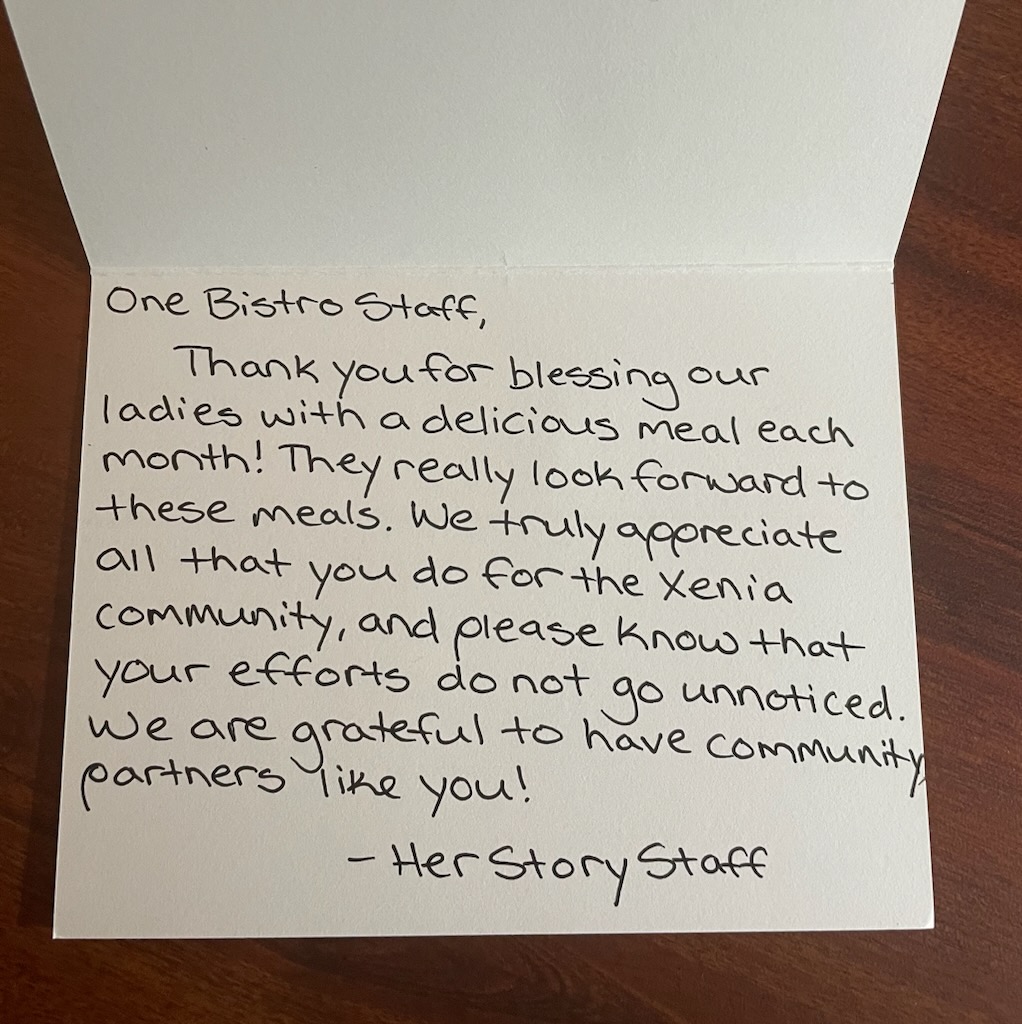 One Bistro Staff,
Thank you for blessing our
ladies with a delicious meal each
month! They really look forward to
these meals. We truly appreciate
all that you do for the Xenia
community, and please know that
your efforts do not go unnoticed.
We are grateful to have community
partners like you!
- Her Story Staff